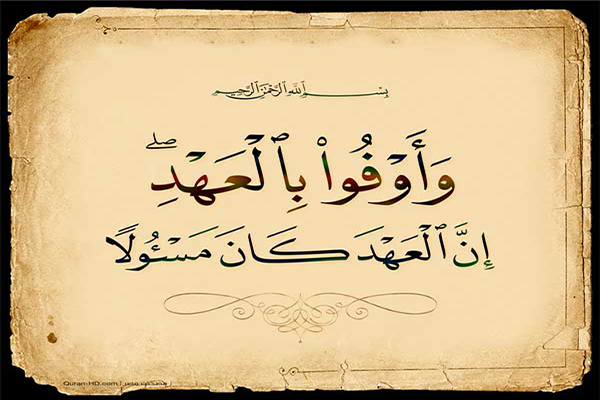 بِسْمِ ٱللَّهِ ٱلرَّحْمَٰنِ ٱلرَّحِيمِ
وَأَوْفُوا۟ بِٱلْعَهْدِ ۖ
إِنَّ ٱلْعَهْدَ كَانَ مَسْـُٔولًا
Quran-HD.com |